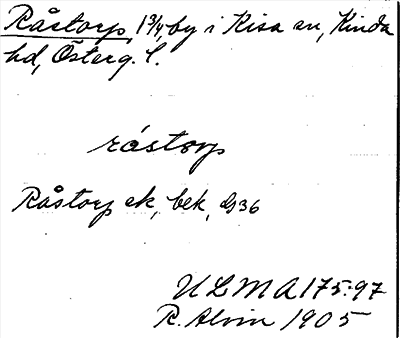 Råstorp 1 3/4, by i Kisa sn, Kinda
hd, Österg. l.
råstorp
Råstorp ek, bek, G36
ULMA 175:97
R. Alvin 1905